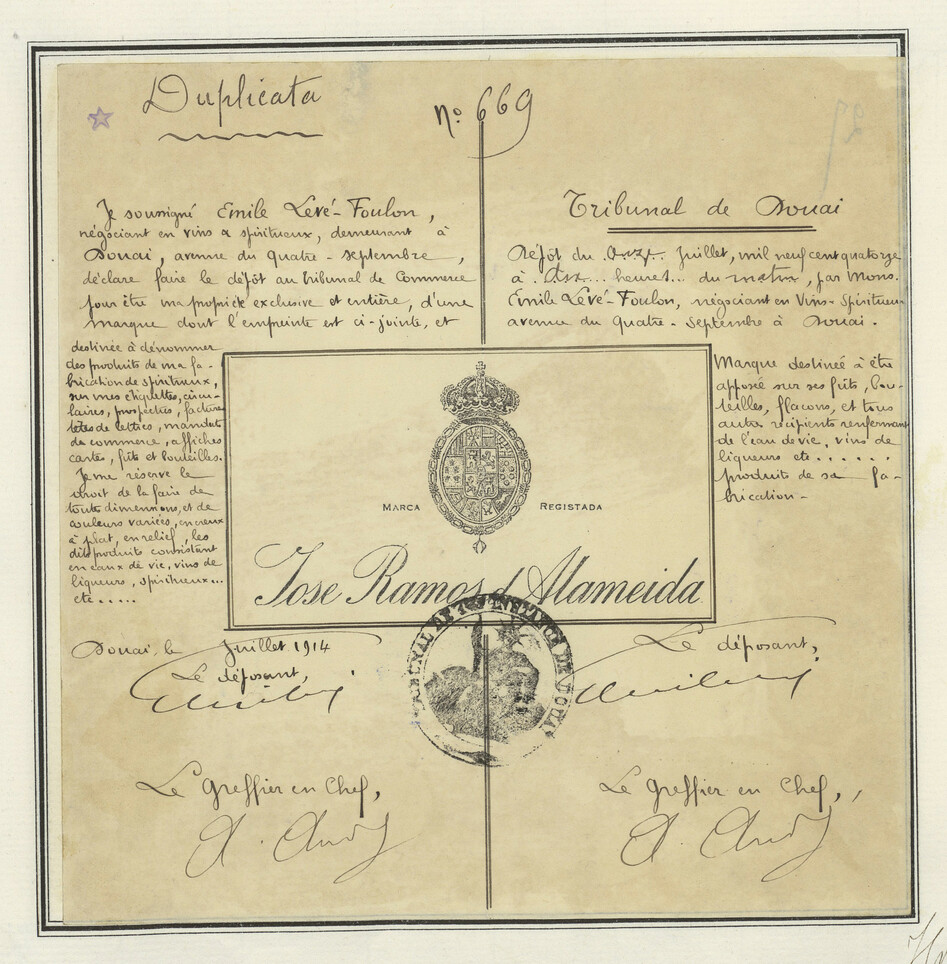 Duplicata
No. 669
Je soussigné Emile Levé-Foulon,
négociant en vins & spiritueux, demeurant à
Douai, avenue du Quatre-Septembre,
déclare faire le dépôt au tribunal de Commerce
pour être ma propriété exclusive et entière, d'une
marque dont l'empreinte est ci-jointe, et
destinée à dénommer
des produits de ma fa-
brication de spiritueux,
sur mes étiquettes, circu-
laires, prospectus, factures
têtes de lettres, mandats
de commerce, affiches
cartes, fûts et bouteilles.
Je me réserve le
droit de la faire de
toute dimensions, et de
couleurs variées, en creux
à plat, en relief, les
dits produits consistant
en eaux de vie, vins de
liqueurs, spiritueux...
etc.....
Tribunal de Douai
Dépôt du onze Juillet, mil neuf cent quatorze
à heures... du matin, par Mons.
Emile Levé-Foulon, négociant en Vins-Spiritueux
avenue du Quatre-Septembre à Douai.
Marque destinée à être
apposée sur ses fûts, bou-
teilles, flacons, et tous
autres récipients renfermant
de l'eau de vie, vins de
liqueurs etc......
produits de sa fa-
brication-
MARCA REGISTADA
Jose Ramos d Alameida
TRIBUNAL DE 1ère INSTANCE DE DOUAI
Douai, le Juillet 1914
Le déposant,
Le greffier en Chef,
Le déposant,
Le greffier en Chef,